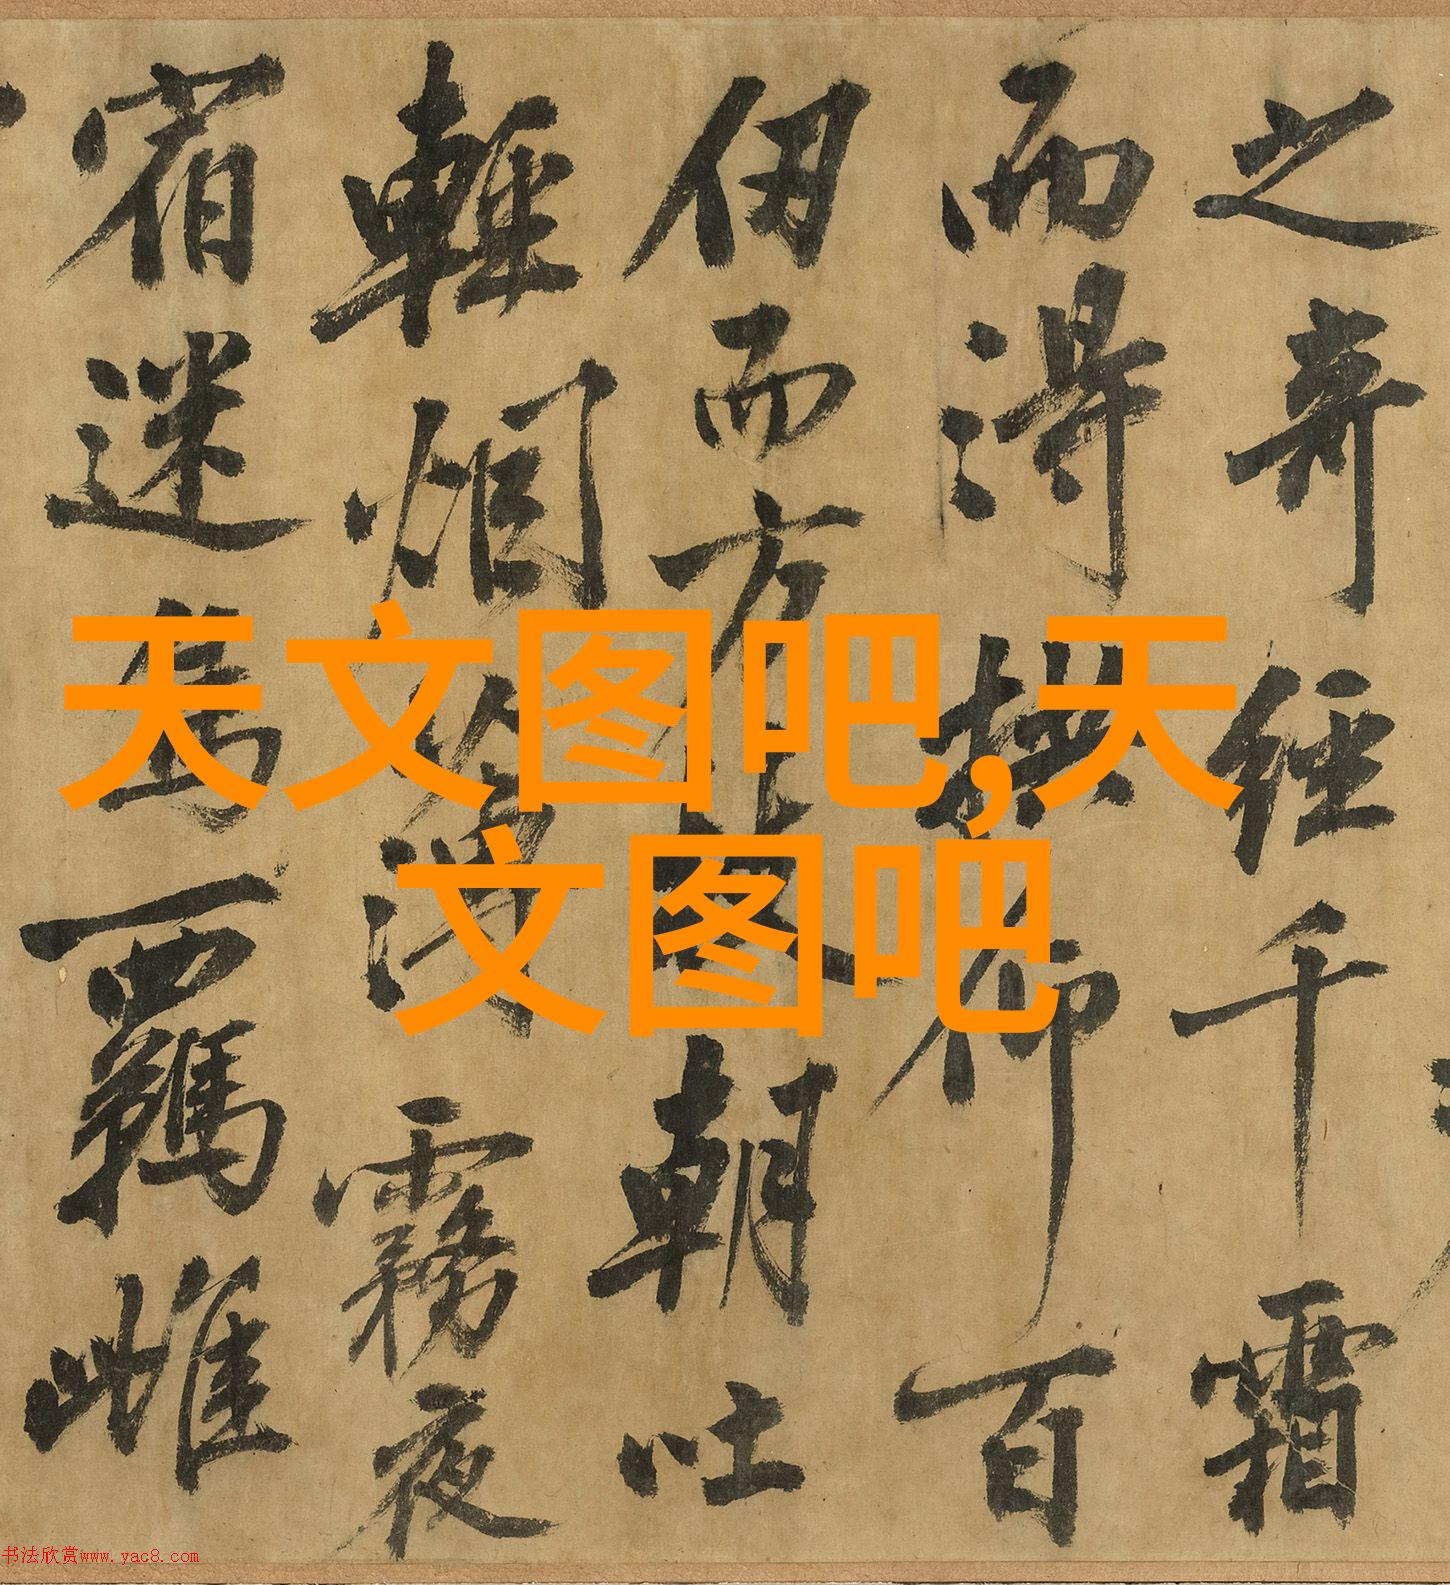 之奇經千霜
而得拱仰百
仞而方枝朝吐
輕烟薄霧夜
宿迷鳥羈雌
天文图吧,天
文图吧
书法欣赏www.yac8.com